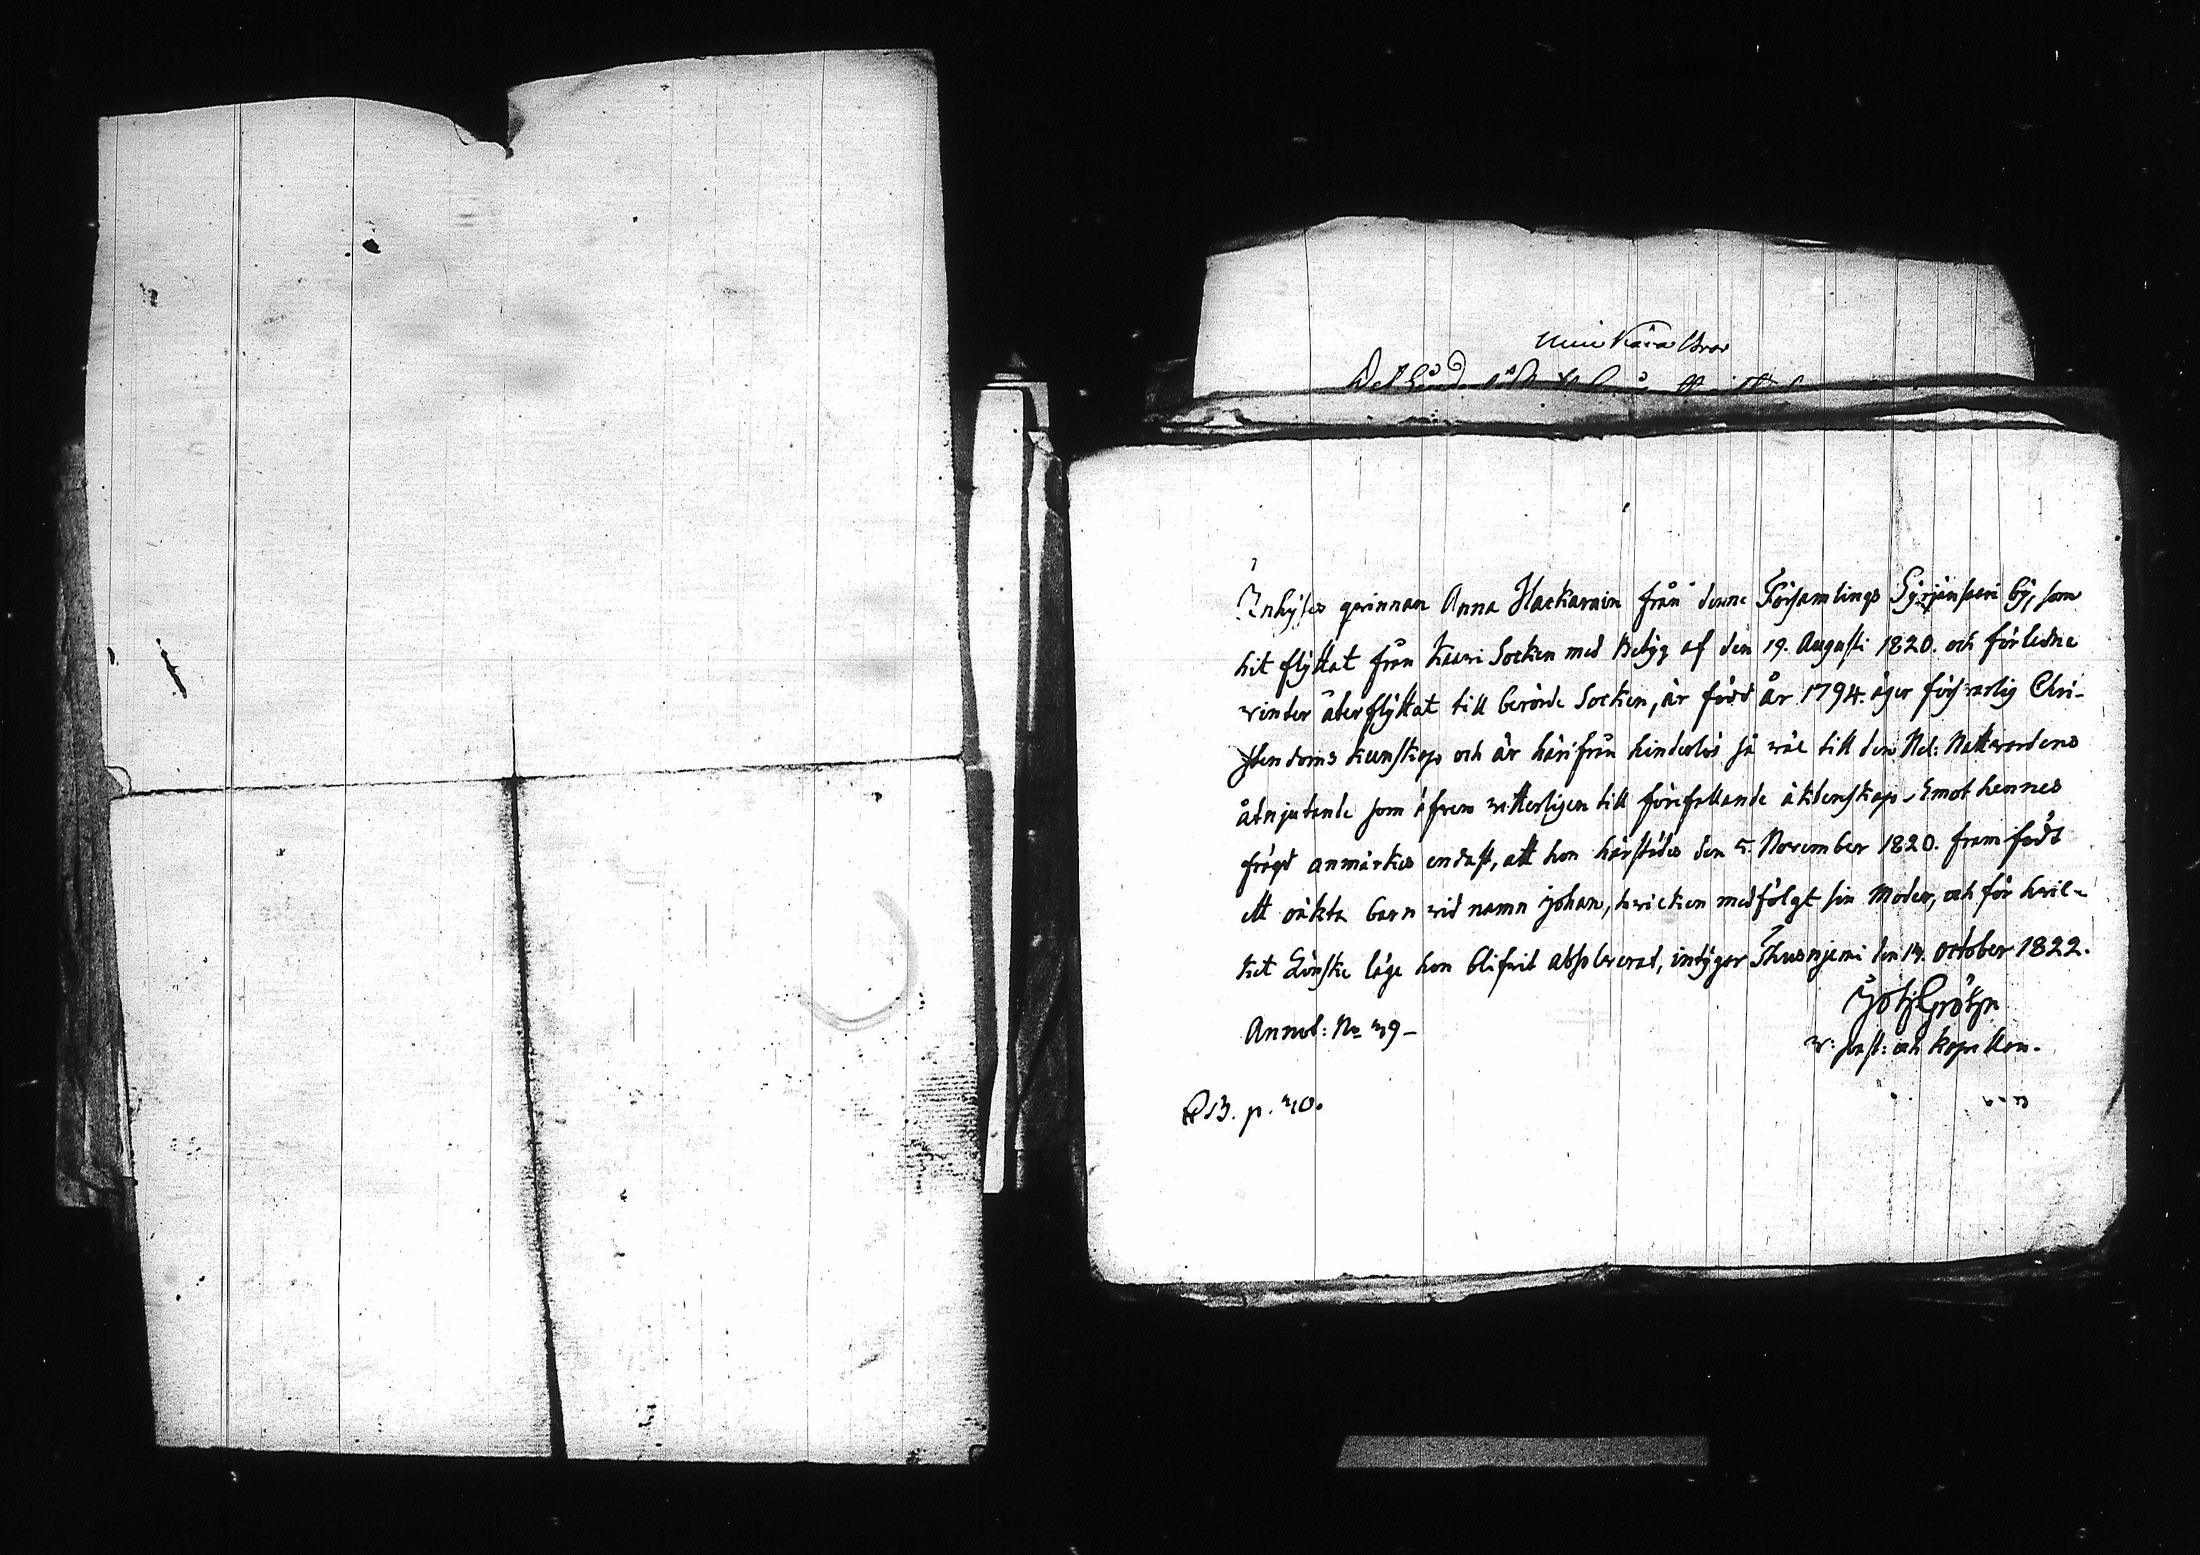 Min Kära Bror
Inhyses qvinnan Anna Hackarain från denne Församlings Syrjänsaari by, som
hit flyttat från Kaavi Socken med Betyg af den 19. Augusti 1820. och förledne
vinter återflyttat till berörde Socken, är född år 1794. äger försvarlig Chri-
stendoms kunskap och är härifrån hinderlös så väl till den Hel: Nattvardens
åtnjutande som äfven vitterligen till förefallande äktenskap - Emot hennes
frägd anmärkes endast, att hon härstädes den 5 November 1820. framfödt
ett oäkta barn vid namn Johan, hvilken medfölgt sin Moder, och för hvil-
ket Lönske läge hon blifvit absolverad, intygar Thusnjemi den 14. October 1822.
Joh: Grötzn
v: past: och kapellan.
Annot: No 39 -
p. 310.